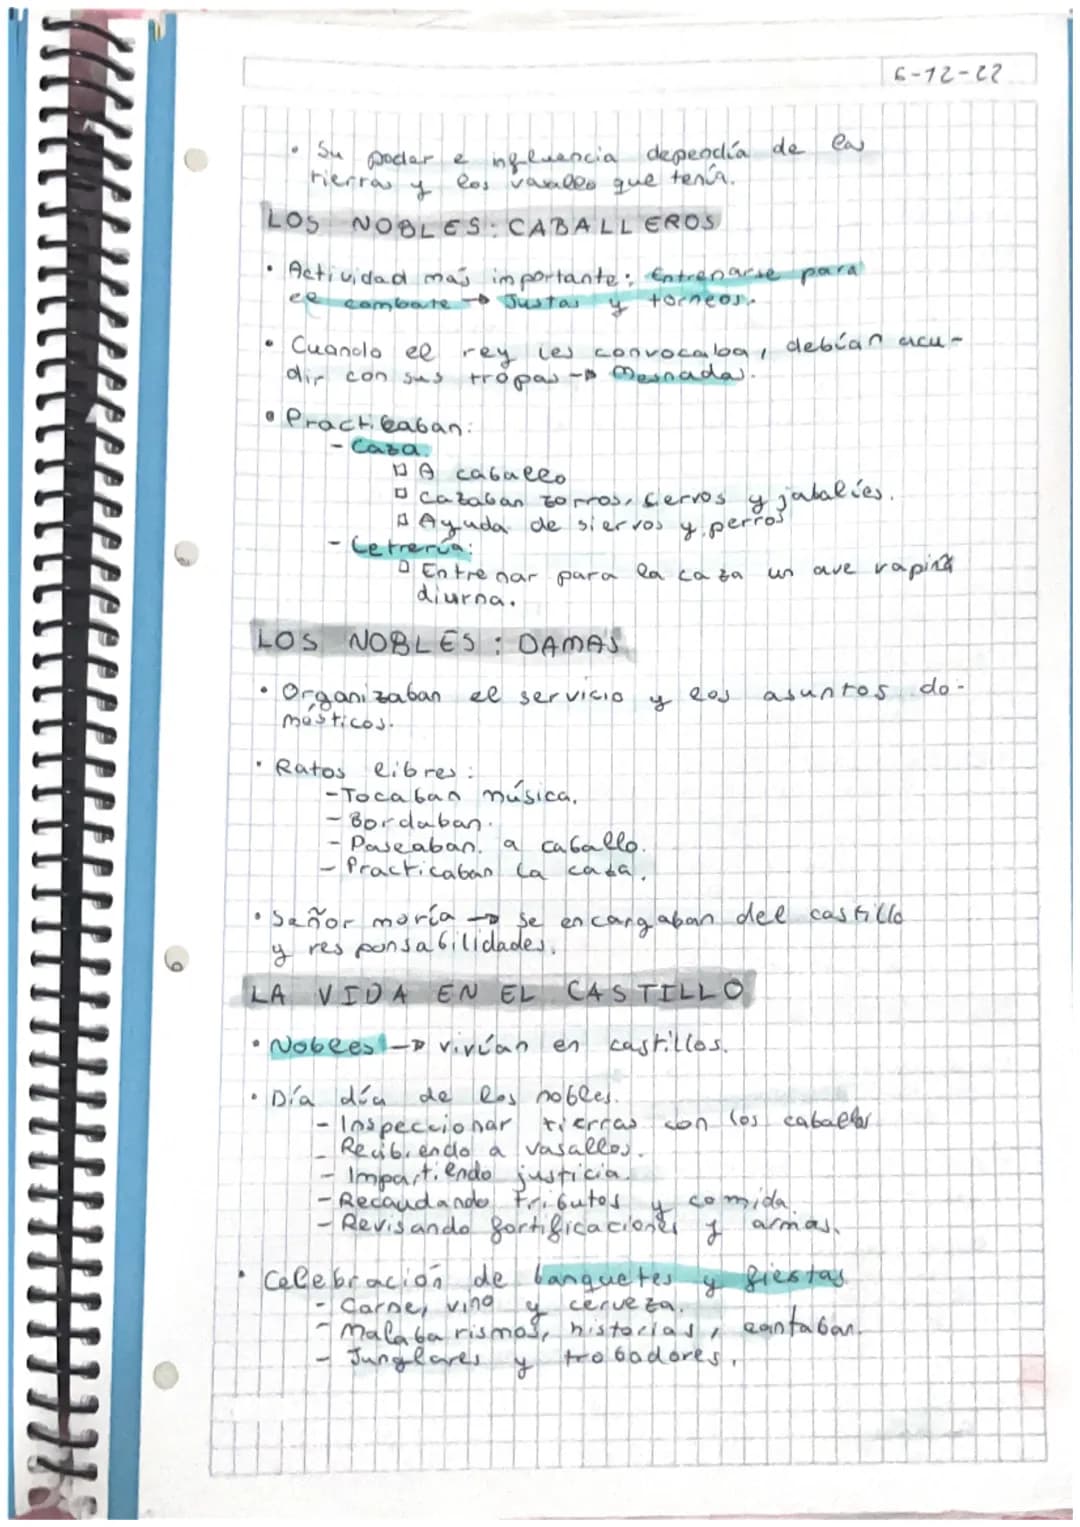 6-12-22
• Su poder e influencia dependía de las
tierras y los vasallos que tenía.
LOS NOBLES: CABALLEROS
• Actividad más importante: Entrenarse para
el combate → Justas y torneos.
• Cuando el rey les convocaba, debían acu-
dir con sus tropas → Mesnadas.
• Practicaban:
- Caza:
□ A caballo
□ Cazaban zorros, ciervos y jabalíes.
□ Ayuda de siervos y perros
- Cetrería:
□ Entrenar para la caza un ave rapiña
diurna.
LOS NOBLES: DAMAS
• Organizaban el servicio y los asuntos do-
mésticos.
• Ratos libres:
- Tocaban música.
- Bordaban.
- Paseaban a caballo.
- Practicaban la caza.
• Señor moría → se encargaban del castillo
y responsabilidades.
LA VIDA EN EL CASTILLO
• Nobles → vivían en castillos.
• Día día de los nobles.
- Inspeccionar tierras con los caballos
- Recibiendo a vasallos.
- Impartiendo justicia.
- Recaudando tributos y comida.
- Revisando fortificaciones y armas.
• Celebración de banquetes y fiestas
- Carne, vino y cerveza.
- Malabarismos, historias, cantaban.
- Junglares y trobadores.